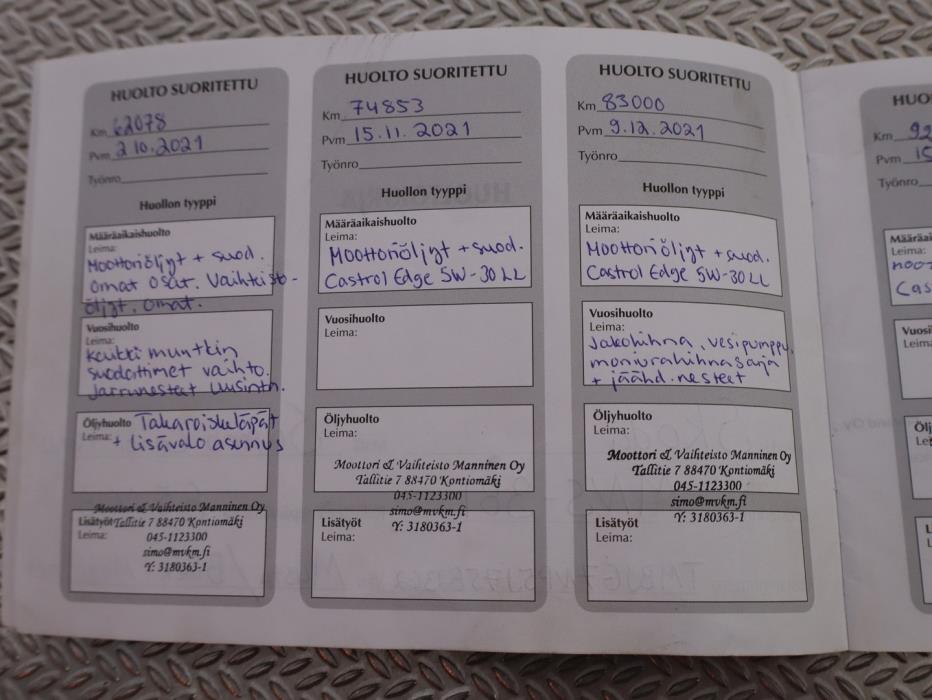 HUOLTO SUORITETTU
Km 62078
Pvm 2 10.2021
Työnro
Huollon tyyppi
Määräaikaishuolto
Leima:
Moottoriöljyt + suod.
omat osat. Vaihteisto-
öljyt, omat.
Vuosihuolto
Leima:
Kaikki muutkin
suodattimet vaihto.
Jarrunesteet Uusinta.
Öljyhuolto Takaroiskeläpät
Leima: + Lisävalo asennus
Moottori & Vaihteisto Manninen Oy
Lisätyöt Tallitie 7 88470 Kontiomäki
Leima: 045-1123300
simo@mvkm.fi
Y: 3180363-1
HUOLTO SUORITETTU
Km 74853
Pvm 15.11.2021
Työnro
Huollon tyyppi
Määräaikaishuolto
Leima:
Moottoriöljyt + suod.
Castrol Edge 5W-30 LL
Vuosihuolto
Leima:
Öljyhuolto
Leima:
Moottori & Vaihteisto Manninen Oy
Tallitie 7 88470 Kontiomäki
045-1123300
simo@mvkm.fi
Lisätyöt
Y: 3180363-1
Leima:
HUOLTO SUORITETTU
Km 83000
Pvm 9.12.2021
Työnro
Huollon tyyppi
Määräaikaishuolto
Leima:
Moottoriöljyt + suod.
Castrol Edge 5W-30 LL
Vuosihuolto
Leima:
Jakohihna, vesipumppu,
moniurahihnasarja
+ jäähd. nesteet
Öljyhuolto
Leima:
Moottori & Vaihteisto Manninen Oy
Tallitie 7 88470 Kontiomäki
045-1123300
simo@mvkm.fi
Lisätyöt
Y: 3180363-1
Leima:
HUO
Km 92
Pvm 15
Työnro
Määräai
Leima:
moot
Cas
Vuosi
Leima
Öl
Le
L